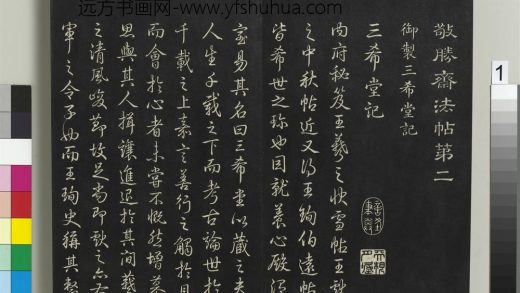 远方书画网-www.yfshuhua.com
敬勝齋法帖第二
御製三希堂記
三希堂記
内府秘笈王羲之快雪帖王獻
之中秋帖近又得王珣伯遠帖
皆希世之珍也因就養心殿溫
室易其名曰三希堂以藏之夫
人生千載之下而考古論世於
千載之上嘉言善行之觸於目
而會於心者未嘗不慨然增慕
思與其人揖讓進退於其間羲
之清風峻節故足尚即獻之亦右
軍之令子也而王珣史稱其整
1